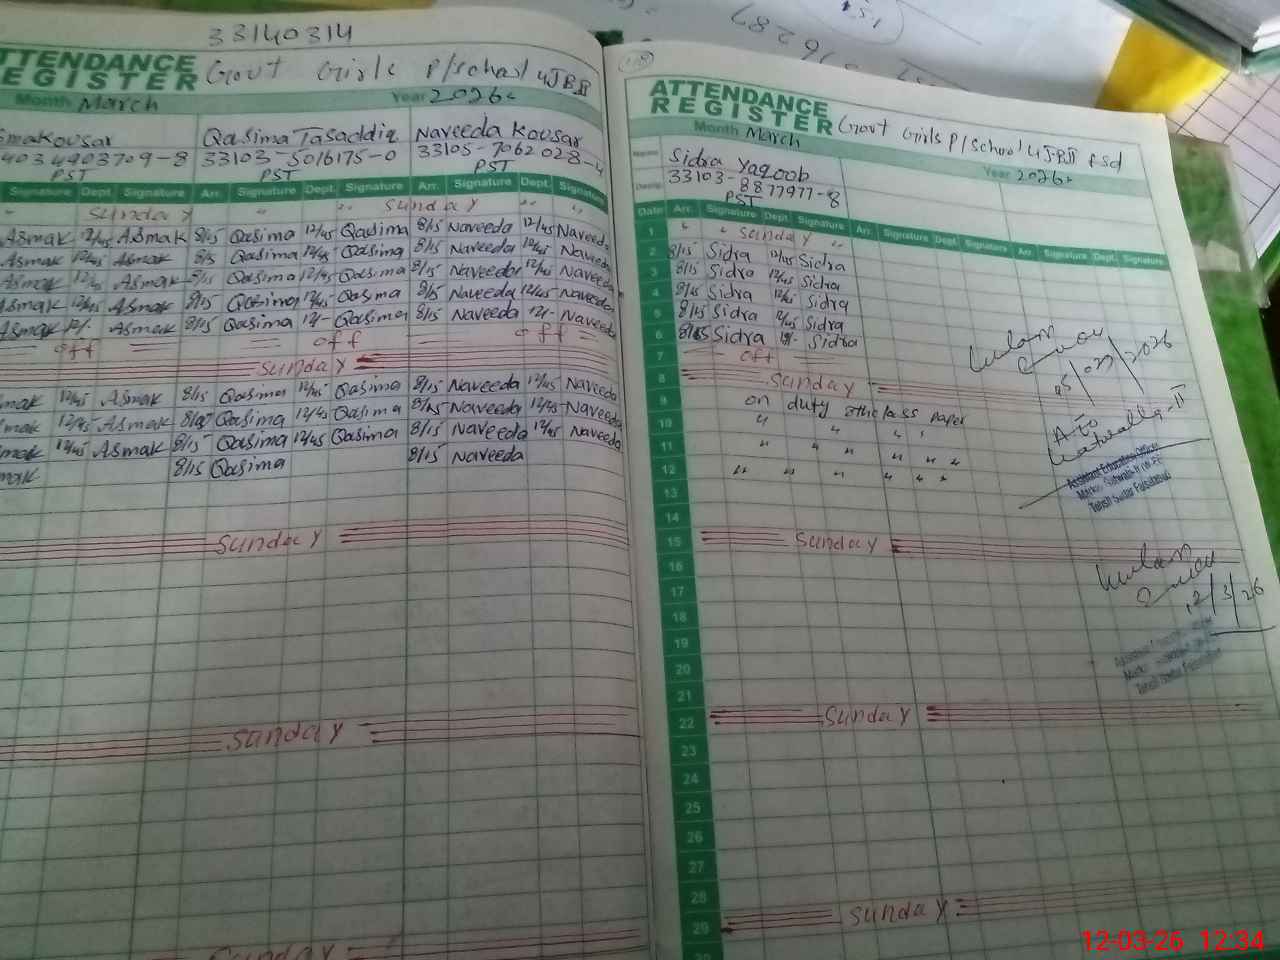 33140314
ATTENDANCE
REGISTER Govt Girls P/School 4JBII
Month March Year 2026
smaKousar Qasima Tasaddiq Naveeda Kousar
4034903709-8 33103-5016175-0 33105-7062028-4
PST PST PST
Signature Dept. Signature Arr. Signature Dept. Signature Arr. Signature Dept. Signature
" Sunday " " Sunday " "
ASmak 12/45 ASmak 8/15 Qasima 12/45 Qasima 8/15 Naveeda 12/45 Naveeda
Asmak 12/45 Asmak 8/15 Qasima 12/45 Qasima 8/15 Naveeda 12/45 Naveeda
Asmak 12/45 Asmak 8/15 Qasima 12/45 Qasima 8/15 Naveeda 12/45 Naveeda
Asmak 12/45 Asmak 8/15 Qasima 12/45 Qasima 8/15 Naveeda 12/45 Naveeda
Asmak 12/- Asmak 8/15 Qasima 12/- Qasima 8/15 Naveeda 12/- Naveeda
off off off
Sunday
mak 12/45 Asmak 8/15 Qasima 12/45 Qasima 8/15 Naveeda 12/45 Naveeda
mak 12/45 Asmak 8/15 Qasima 12/45 Qasima 8/15 Naveeda 12/45 Naveeda
mak 12/45 Asmak 8/15 Qasima 12/45 Qasima 8/15 Naveeda 12/45 Naveeda
mak 8/15 Qasima 8/15 Naveeda
Sunday
Sunday
Sunday
118
ATTENDANCE
REGISTER Govt Girls P/School 4JBII fsd
Month March Year 2026
Name Sidra Yaqoob
33103-8877977-8
Desig. PST
Date Arr. Signature Dept. Signature Arr. Signature Dept. Signature Arr. Signature Dept. Signature
1 " " Sunday "
2 8/15 Sidra 12/45 Sidra
3 8/15 Sidra 12/45 Sidra
4 8/15 Sidra 12/45 Sidra
5 8/15 Sidra 12/45 Sidra
6 8/15 Sidra 12/- Sidra
7 off
8 Sunday
9 on duty 5th class paper
10 " " " "
11 " " " " " "
12 " " " " " "
13
14
15 Sunday
16
17
18
19
20
21
22 Sunday
23
24
25
26
27
28
29 Sunday
30
05/03/2026
AEO
Assistant Education Officer
Tehsil Sadar Faisalabad
12/3/26
Tehsil Sadar Faisalabad
12-03-26 12:34